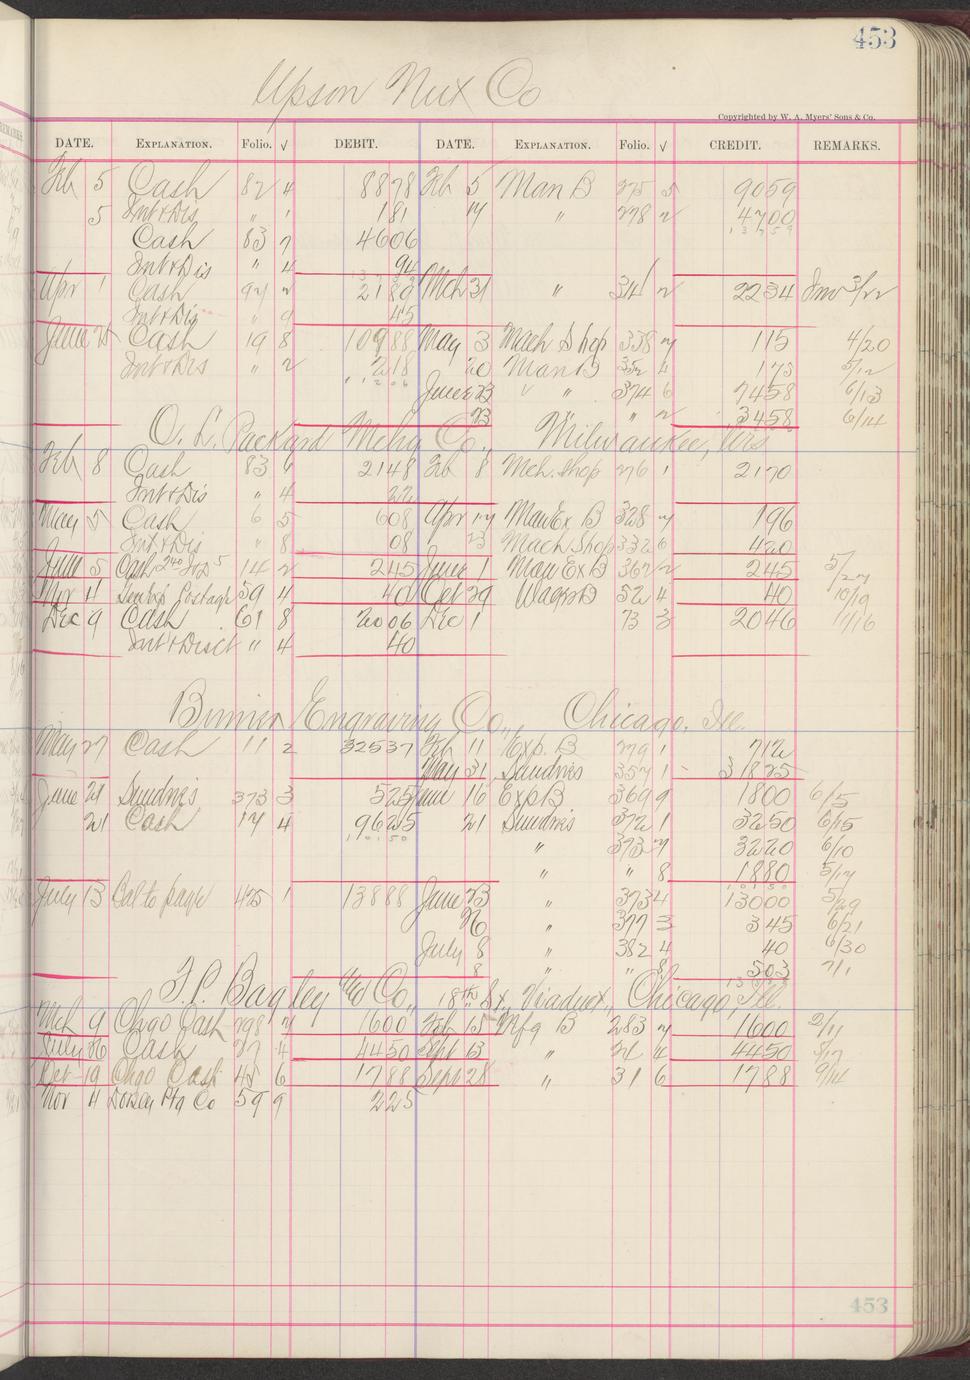 453
Upson Nut Co
Copyrighted by W. A. Myers' Sons & Co.
DATE. EXPLANATION. Folio. √ DEBIT. DATE. EXPLANATION. Folio. √ CREDIT. REMARKS.
Feb 5 Cash 82 4 8878 Feb 5 Man B 275 5 9059
5 Int & Dis " 1 181 14 " 278 2 4700
Cash 83 7 4606 13759
Int & Dis " 4 94
Apr 1 Cash 94 2 2189 Mch 31 " 314 2 2234 Inv 3/22
Int & Dis 9 45
June 25 Cash 19 8 10988 May 3 Mach Shop 338 7 115 4/20
Int & Dis " 2 218 20 Man B 352 4 175 5/12
11206 June 23 " " 374 6 7458 6/13
23 " " 2 3458 6/14
O. L. Packard Mchy Co., Milwaukee, Wis
Feb 8 Cash 83 6 2148 Feb 8 Mch. Shop 276 1 2170
Int & Dis " 4 22
May 5 Cash 6 5 608 Apr 14 Man Ex B 328 7 196
Int & Dis " 8 08 23 Mach Shop 332 6 420
June 5 Cash 240 Dis 5 14 2 245 June 1 Man Ex B 362 2 245 5/27
Nov 11 Postage 59 4 40 Oct 29 52 4 40 10/19
Dec 9 Cash 61 8 2006 Dec 1 73 3 2046 11/16
Int & Disct " 4 40
Binner Engraving Co., Chicago, Ill.
May 27 Cash 11 2 32537 Feb 11 Exp. B 279 1 712
May 31 Sundries 357 1 31825
June 21 Sundries 373 3 525 June 16 Exp B 369 9 1800 6/15
21 Cash 17 4 9625 21 Sundries 372 1 3250 6/15
10150 " 373 7 3220 6/10
" " 8 1880 5/17
July 13 Bal to page 425 1 13888 June 23 " 373 4 13000 5/29
26 " 377 3 345 6/21
July 8 " 382 4 40 6/30
8 " " 8 503 7/1
F. P. Bagley & Co., 18th St., Viaduct, Chicago, Ill.
Mch 9 Chgo Cash 298 7 1600 Feb 15 Mfg B 283 7 1600 2/11
July 26 Cash 27 4 4450 Sept 13 " 4 4450
Oct 19 Chgo Cash 45 6 1788 Sept 28 " 31 6 1788 9/14
Nov 11 Ptg Co 59 9 225
453